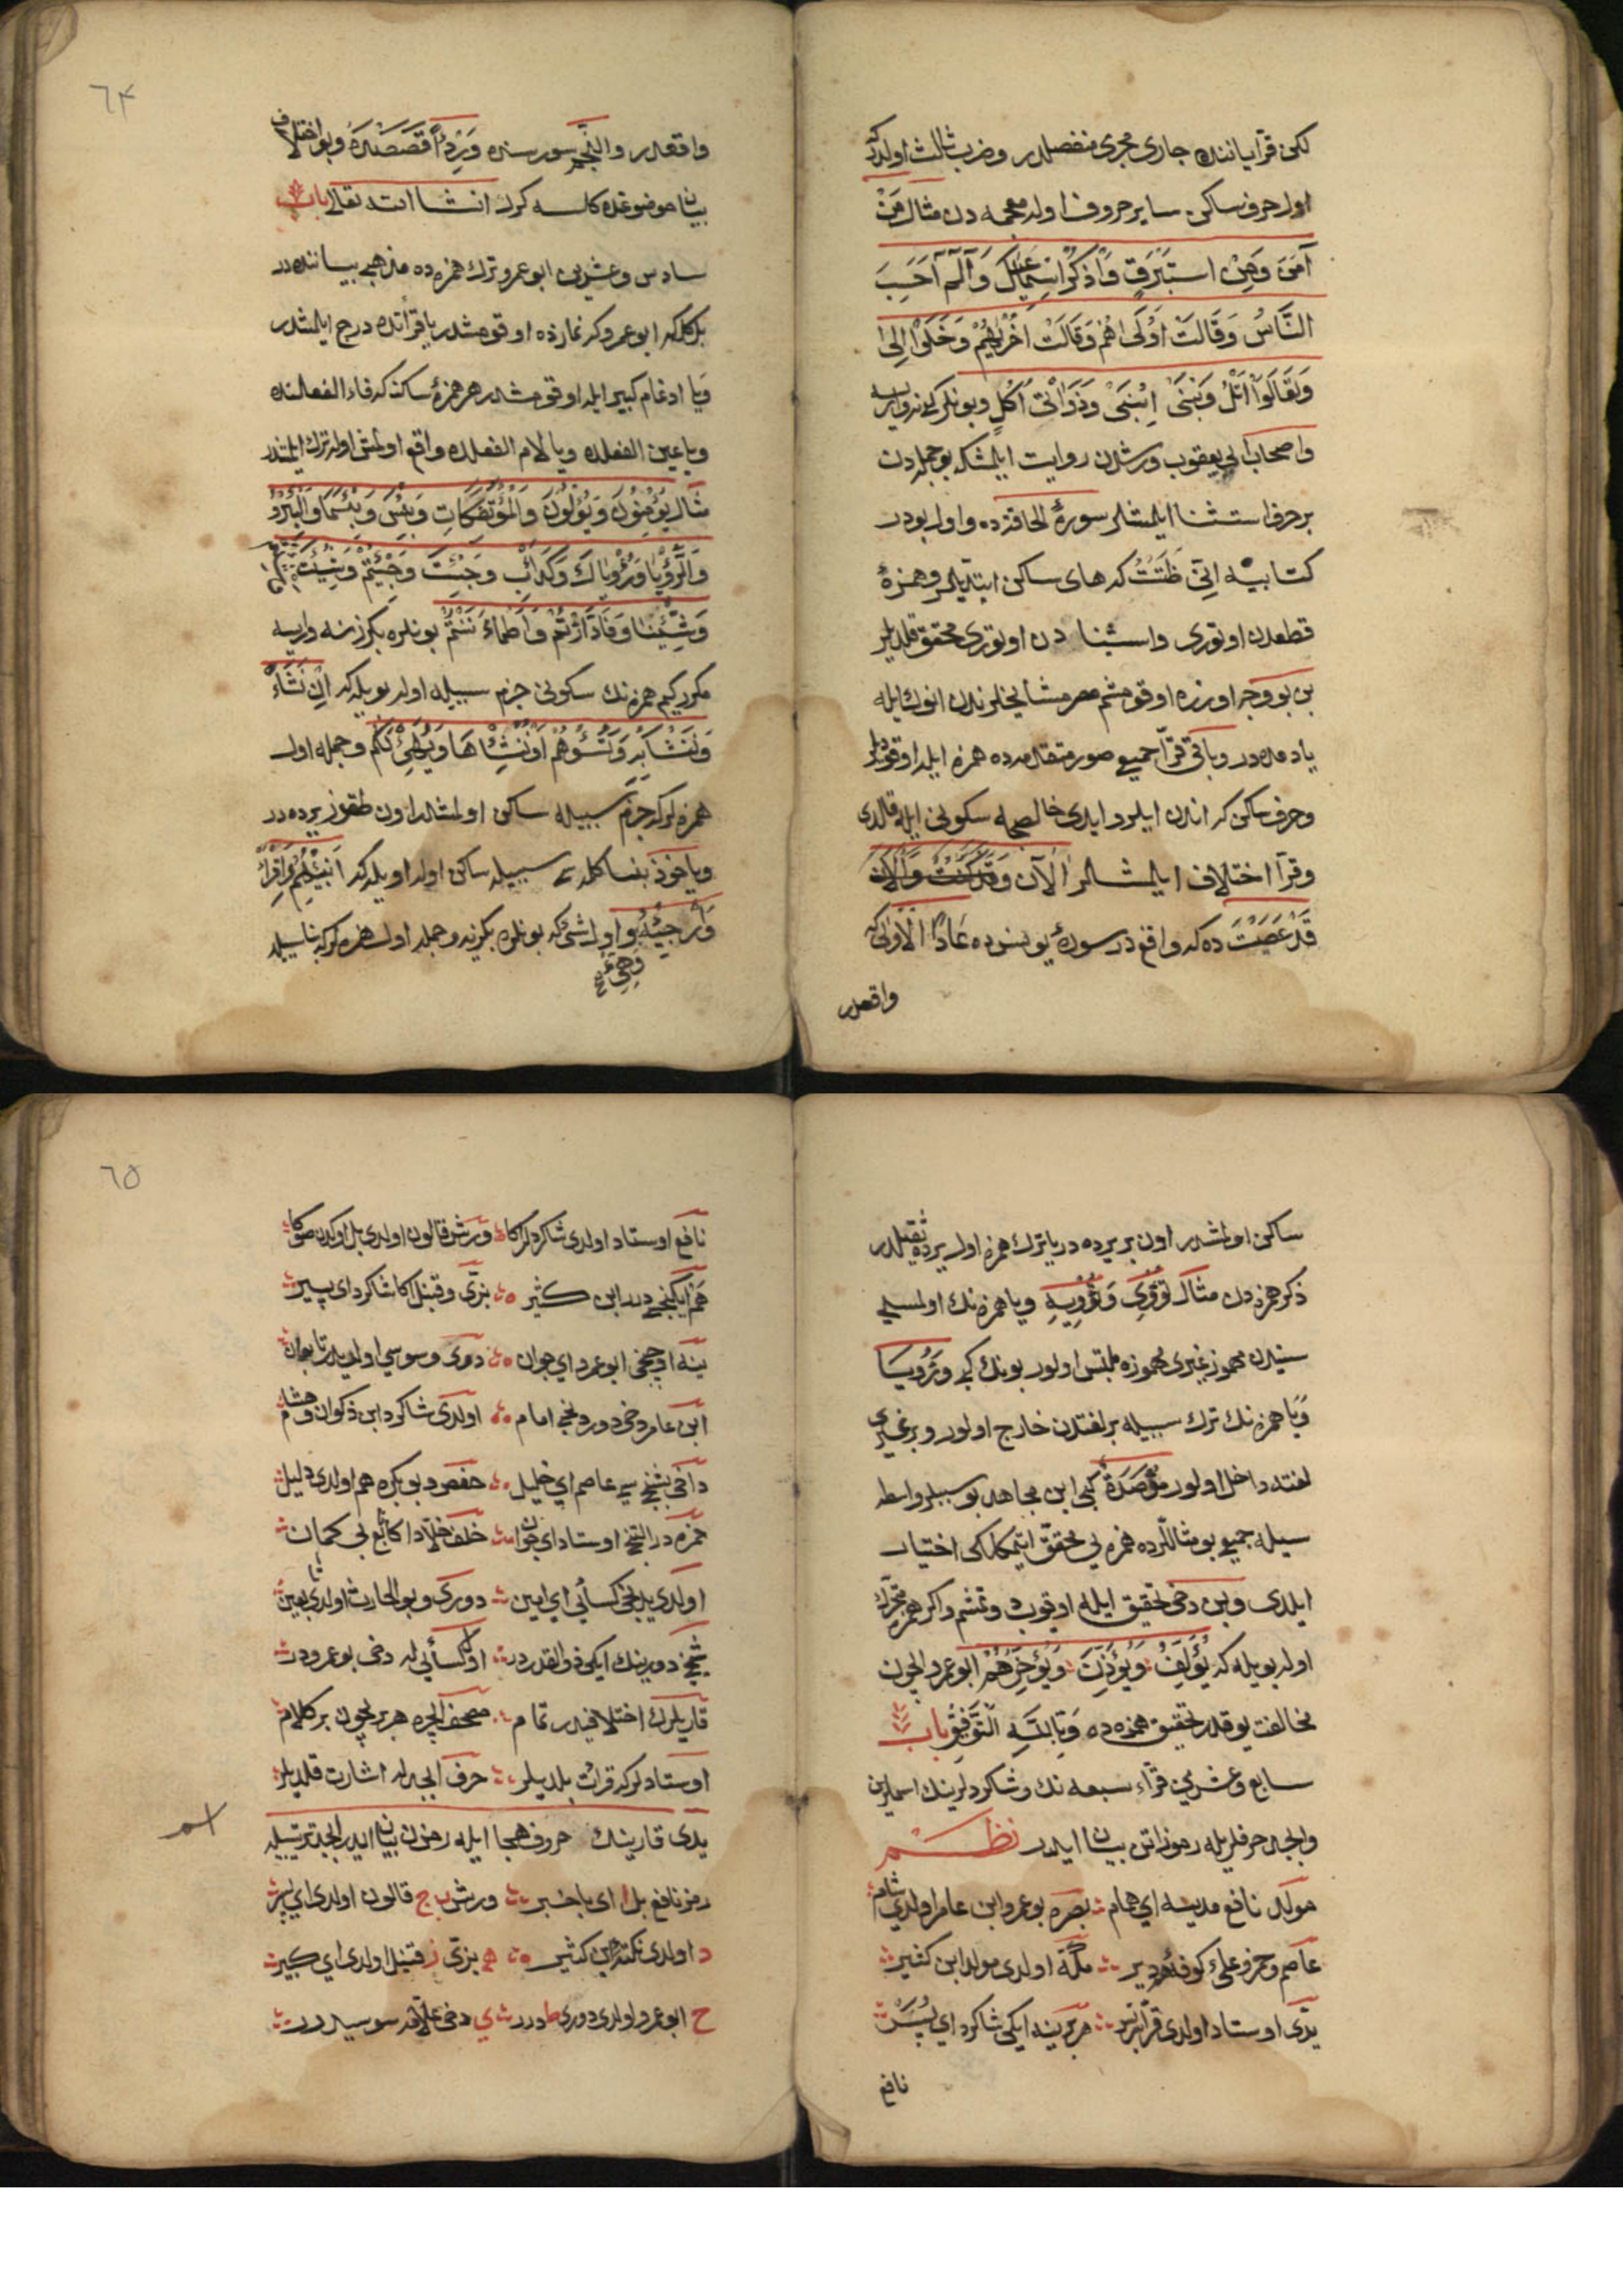 لكن قرآ ياننده جاری مجری منفصلدر وضرب ثالث اولدركه
اول حرف ساكن سایر حروف اوله معجمه دن مثال مَنْ
آمَنَ وَمِنْ اسْتَبْرَقٍ وَاذْكُرْ اسْمٰعيلَ وَآلٓمٓ اَحَسِبَ
النَّاسُ وَقَالَتْ اُولٰيهُمْ وَقَالَتْ اُخْرٰيهُمْ وَخَلَوْا اِلٰى
وَتَعَالَوْا اَتْلُ وَنَبَأَ ابْنَىْ وَذَوَاتَىْ اُكُلٍ وبونلر كبی نه وارسه
واصحاب ابی یعقوب ورشدن روایت ایلمشلر كه بو جمله دن
بر حرف استثنا ایلمشلر سورۀ الحاقه ده واول بودر
كتابیه اِنّی ظَنَنْتُ كه های ساكن ابتدیلر وهمزۀ
قطعدن اوتوری واستثنا دن اوتوری محقق قلدیلر
بن بو وجه اوزره اوقومشم مصر مشایخلرندن انوك ایله
یاد مده در وباقی قرآ جمیع صور متقدمه ده همزه ایله اوقودیلر
وحرف ساكن كه اندن ایلرو ایدی خالصجه سكونی ایله قالدی
وقرآ اختلاف ایلمشلر اٰلْآنَ وَقَدْ كُنْتُمْ وَآلْآنَ
قَدْ عَصَيْتَ ده كه واقع در سورۀ یونس ده عَادًا الْاُولٰى كه
واقعدر
٦٤
واقعدر والنَّجم سورسنده وَرِدْءًا قصصنده وبو اختلاف
بیان موضوعنده كلسه كرك انشا الله تعالی باب
سادس وعشرین ابو عمرو ترك همزه ده مذهبی بیاننده در
بلكل كه ابو عمرو كر نمازده اوقومشدر یا قرأتده درج ایلمشدر
وَیا ادغام كبیر ایله اوقومشدر هر همزۀ ساكن كه فاء الفعلنده
ویا عین الفعلده ویا لام الفعلده واقع اولمش اوله ترك ایلمشدر
مثال يُؤْمِنُونَ وَيُؤْلُونَ وَالْمُؤْتَفِكَاتِ وَبِئْسَ وَبِئْسَمَا وَالْبِئْرِ
وَالرُّؤْيَا وَرُؤْيَاكَ وَكَدَأْبِ وَجِئْتَ وَجِئْتُمْ وَشِئْتَ
وَشِئْنَا وَفَادَّارَأْتُمْ وَاطْمَأْنَنْتُمْ بونلره بكزر نه وارسه
مكر كیم همزنك سكونی جزم سببیله اوله بویله كه اِنْ نَشَأْ
وَنَنْسَأْ وَتَسُؤْهُمْ اَوْ نُنْسِأْهَا وَيُهَيِّئْ لَكُمْ وجمله اول
همزه لر كه جزم سببیله ساكن اولمشلر اون طقوز یرده در
ویاخوذ بنا كلمه سببیله ساكن اوله اویله كه اَنْبِئْهُمْ وَاقْرَأْ
وَاَرْجِئْهُ واول شئ كه بونلره بكزیه وجمله اول همزه لر كه بنا سبیله
وهیئ
ساكن اولمشدر اون بر یرده در یا ترك همزه اول یرده ثقیلدر
ذكر همزدن مثال تُؤْوِی وَتُؤْوِيهِ ویا همزه نك اولمسی
سنیدن مهموز غیری مهموزه ملتبس اولور بونك كبی وَرِءْيًا
وَیا همزه نك ترك سببیله بر لغتدن خارج اولور وبر غیری
لغته داخل اولور مُؤْصَدَةٌ كبی ابن مجاهد بو سببلر واسطه
سیله جمیع بو مثاللرده همزه یی محقق ایتمكلكی اختیار
ایلدی وبن دخی تحقیق ایله اوقیوب دوتمشم واكر همزه متحرك
اوله بویله كه يُؤَلِّفُ وَيُؤَذِّنَ وَيُؤَخِّرْهُمْ ابو عمرو ایچون
مخالفت یوقدر تحقیق همزه ده وَبِاللّٰهِ التَّوْفِيقِ باب
سابع وعشرین قرّاء سبعه نك وشاكردلرینك اسملرین
وابجد حرفلریله رموزاتن بیان ایدر نظم
مولد نافع مدینه ای همام بصره بو عمرو ابن عامر اولدی شام
عاصم وحمزه وعلی كوفه‌دیر مكّه اولدی مولد ابن كثیر
یدی اوستاد اولدی قرآ بر بر هر برینه ایكی شاكرد ای پسر
نافع
٦٥
نافع اوستاد اولدی شاكردلر كا ورش قالون اولدی بل اوكدن صوكا
هم ایكنجی در ابن كثیر بزّی وقنبل اكا شاكرد ای پسیر
ینه اوچنجی ابو عمرو ای جوان دوری وسوسی اولدیلر تابعان
ابن عامر دخی دوردنجی امام اولدی شاكرد ابن ذكوان وهشام
داخی بشنجی عاصم ای خلیل حفص وبو بكره هم اولدی دلیل
حمزه در التنجی اوستاد ای جوان خلف خلّاد اكا تابع بی كمان
اولدی یدنجی كسائی ای امین دوری وبو الحارث اولدی تابعین
شیخ دورینك ایكی ذو القدردر اول كسائی له دخی بو عمرودر
قاریلرك اختلافیدر تمام مصحف ایچره هر بریچون بر كلام
اوستادلر كه قرائت بلدیلر حرف ابجدله اشارت قلدیلر
یدی قارینك حروف هجا ایله رمزن بیان ایدر ابجد ترتیبیله
رمز نافع بل ا ای باخبر ورش ب ج قالون اولدی ای پسر
د اولدی نكته ابن كثیر ه بزّی ز قنبل اولدی ای كبیر
ح ابو عمرو اولدی دوری ط در ی دخی علاقه سوسیدر